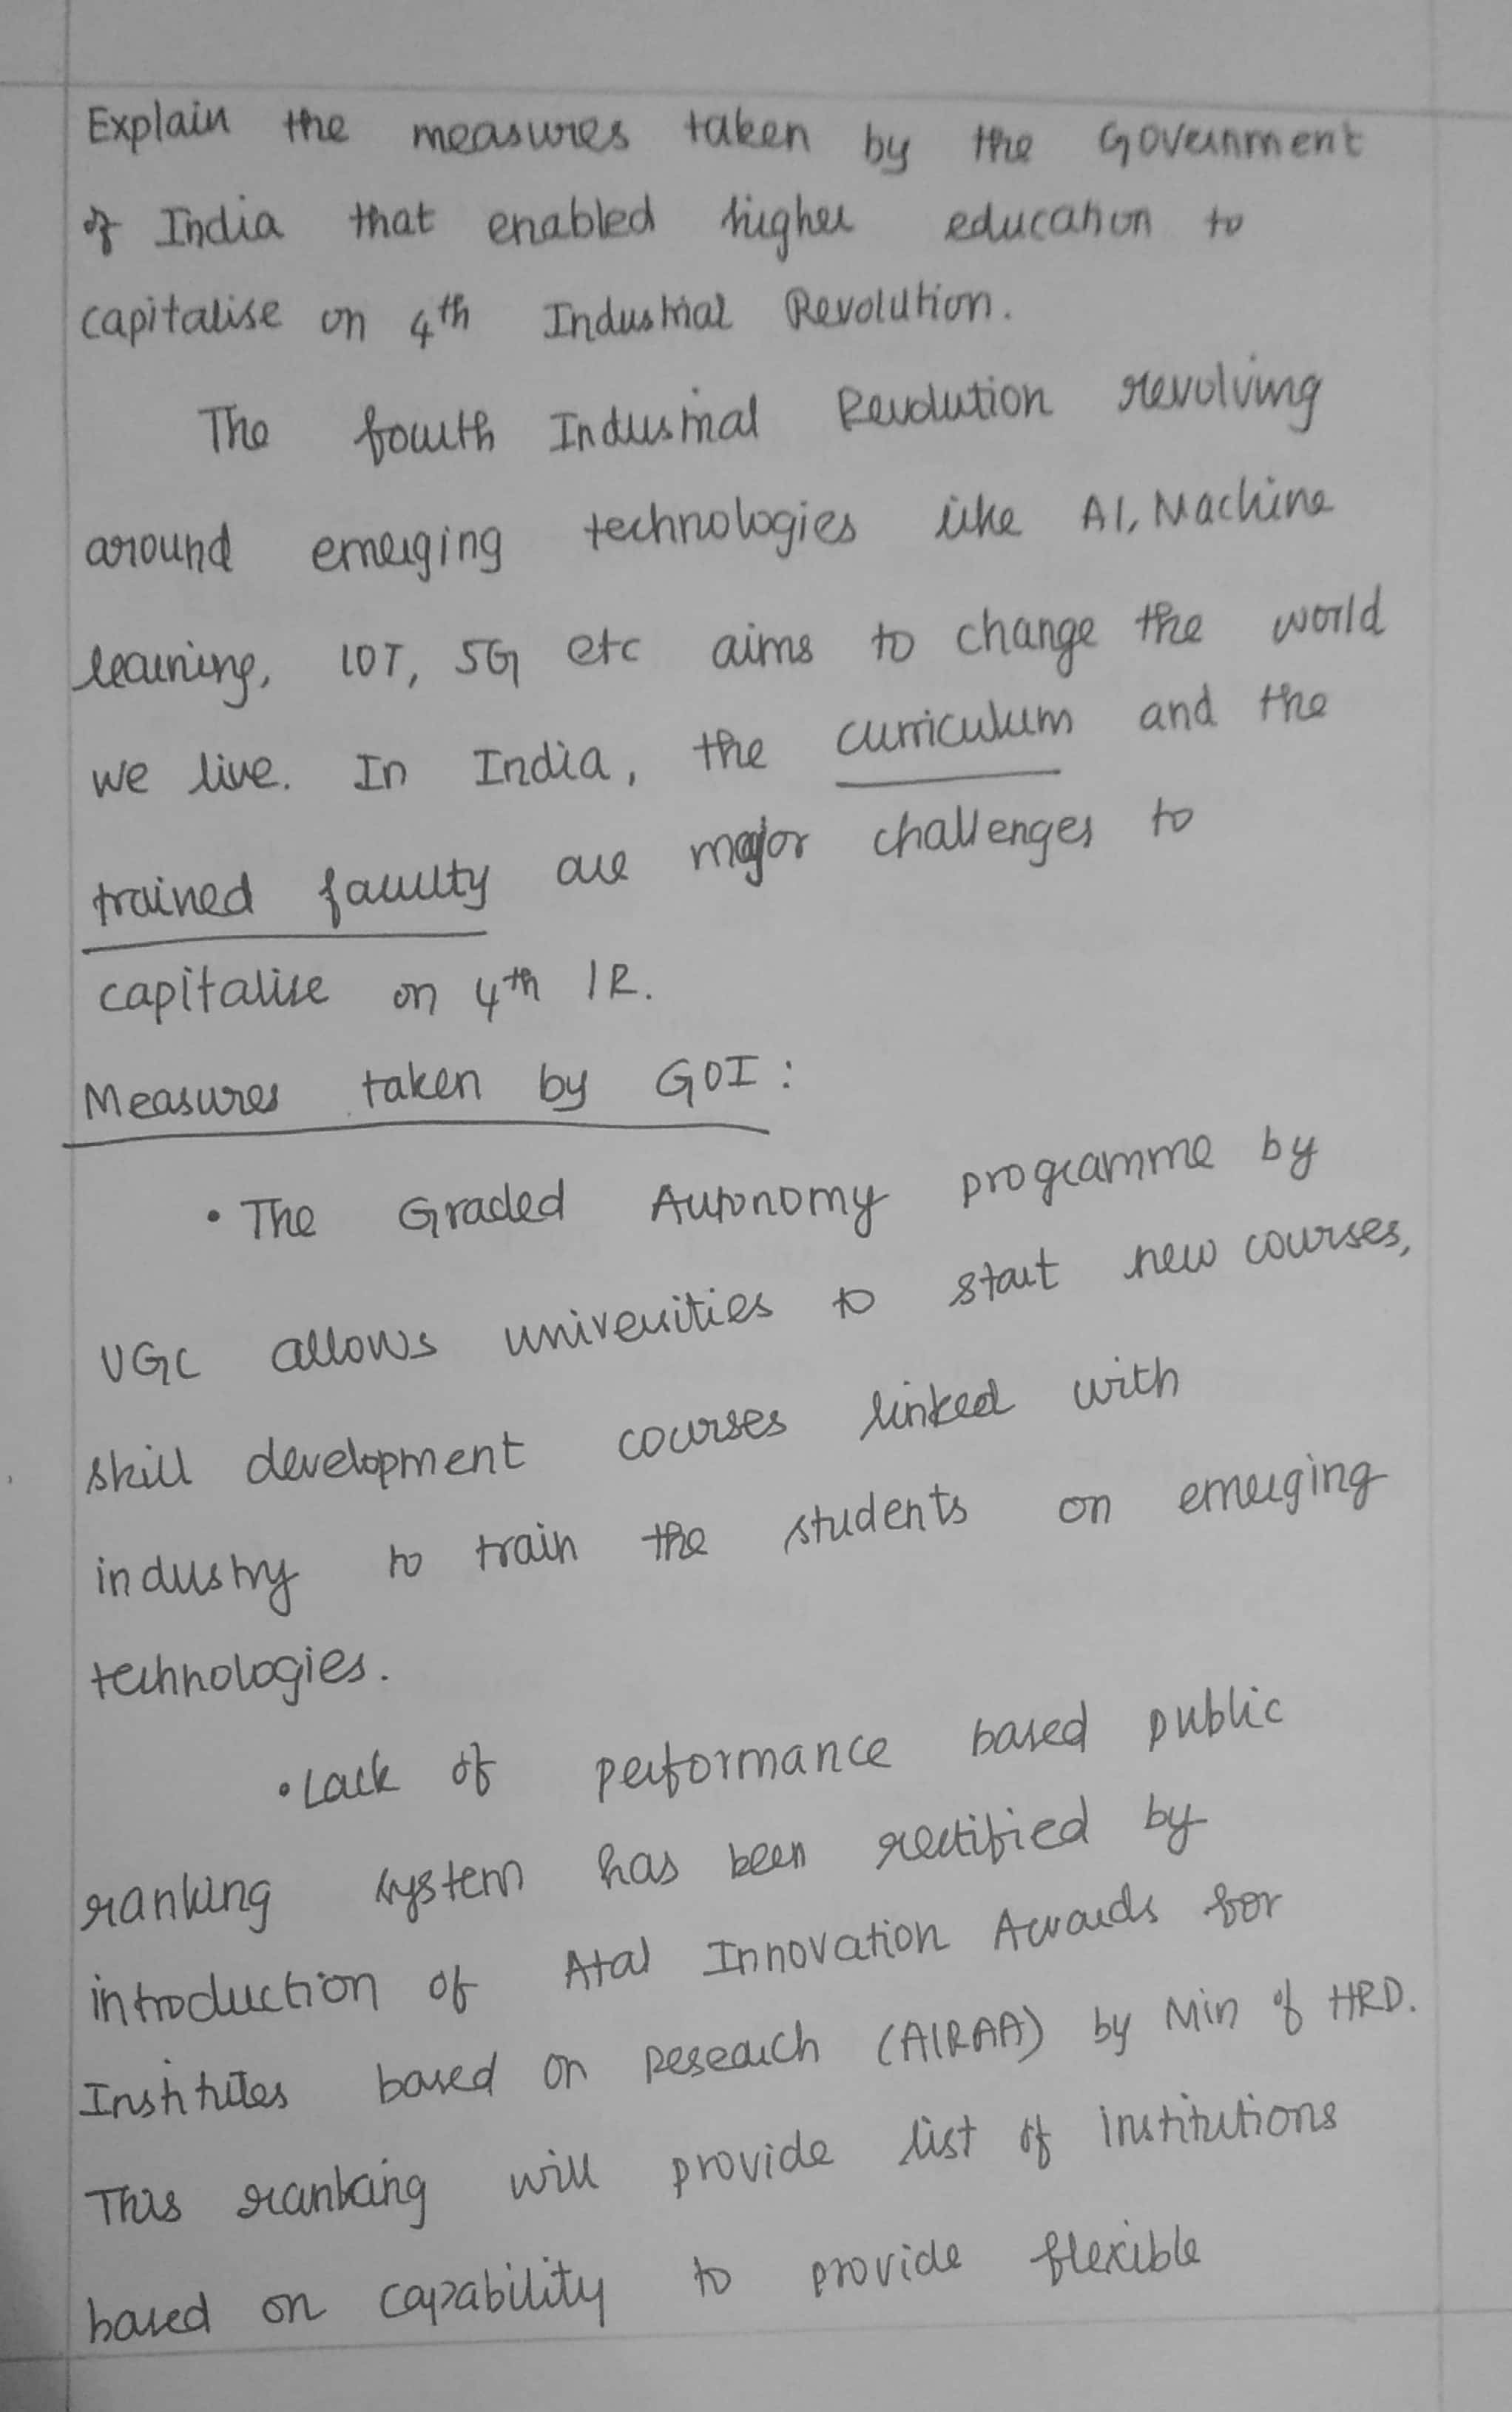 Explain the measures taken by the Government
of India that enabled higher education to
capitalise on 4th Industrial Revolution.
The fourth Industrial Revolution revolving
around emerging technologies like AI, Machine
learning, IOT, 5G etc aims to change the world
we live. In India, the curriculum and the
trained faculty are major challenges to
capitalise on 4th IR.
Measures taken by GOI:
• The Graded Autonomy programme by
UGC allows universities to start new courses,
skill development courses linked with
industry to train the students on emerging
technologies.
• Lack of performance based public
ranking system has been rectified by
introduction of Atal Innovation Awards for
Institutes based on Research (AIRAA) by Min of HRD.
This ranking will provide list of institutions
based on capability to provide flexible